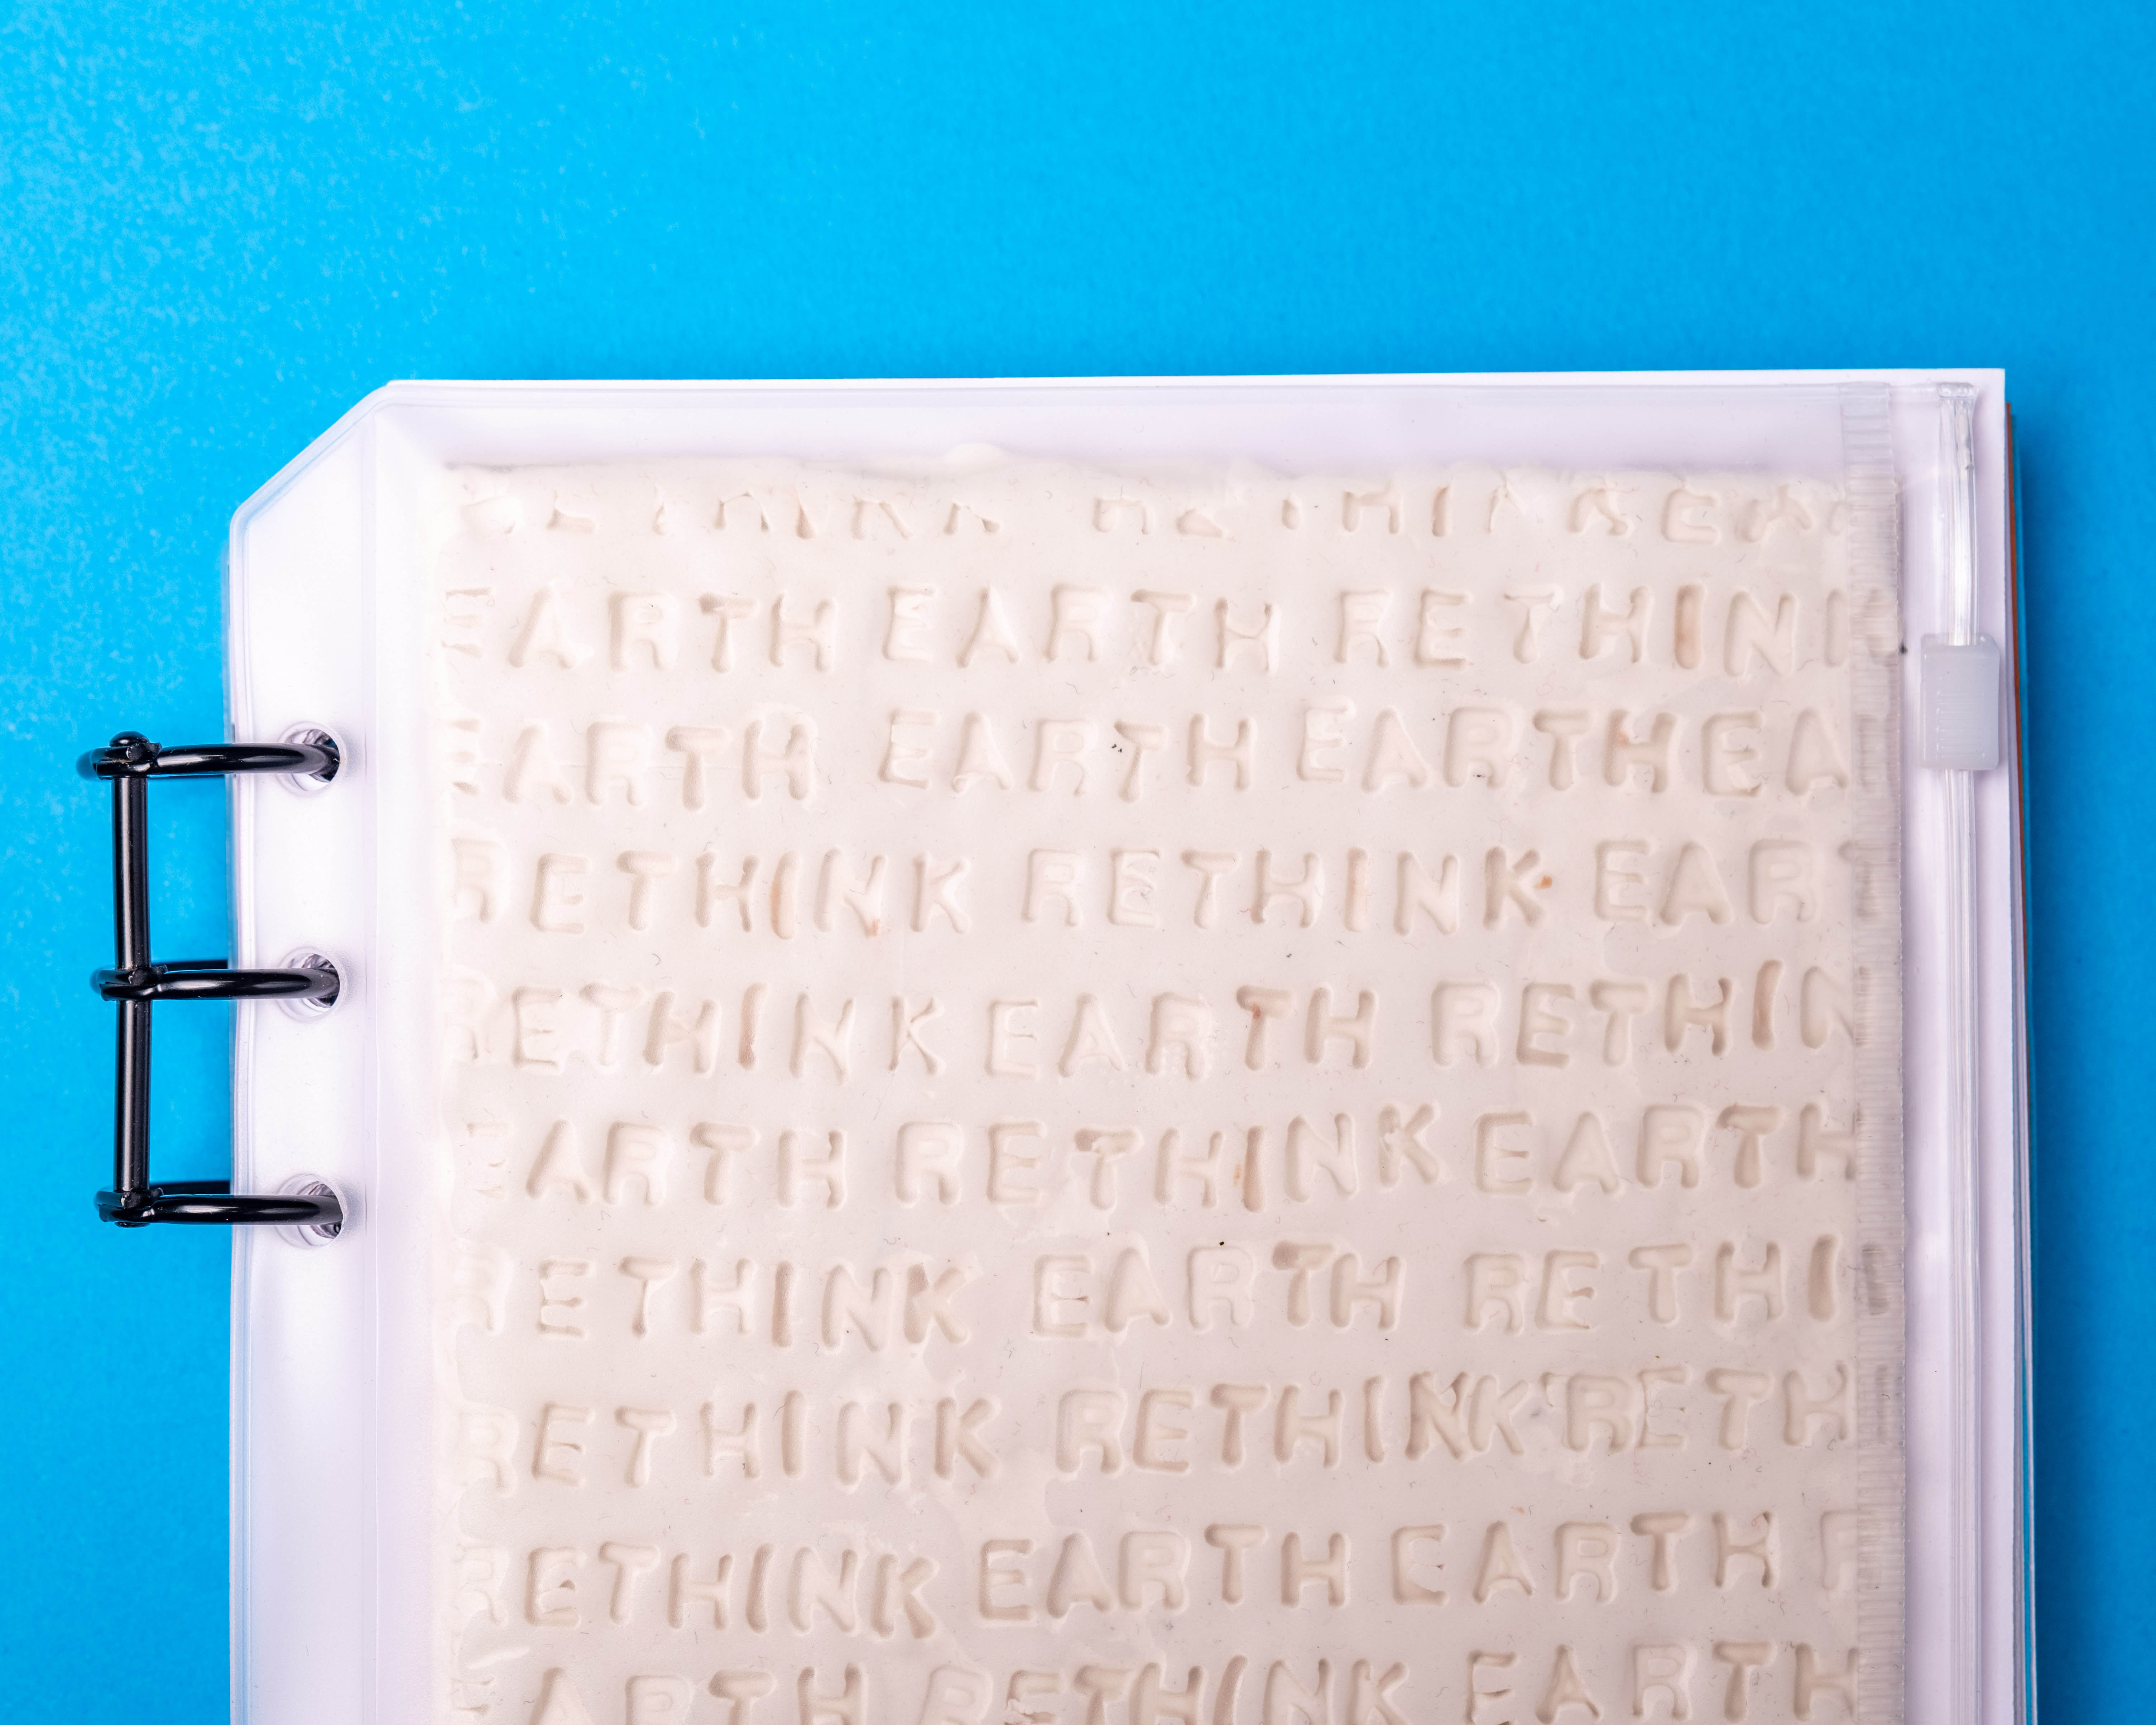 RETHINK RETHINK EA
EARTH EARTH RETHINK
EARTH EARTH EARTH EA
RETHINK RETHINK EART
RETHINK EARTH RETHIN
EARTH RETHINK EARTH
RETHINK EARTH RETHI
RETHINK RETHINK RETH
RETHINK EARTH EARTH R
EARTH RETHINK EARTH